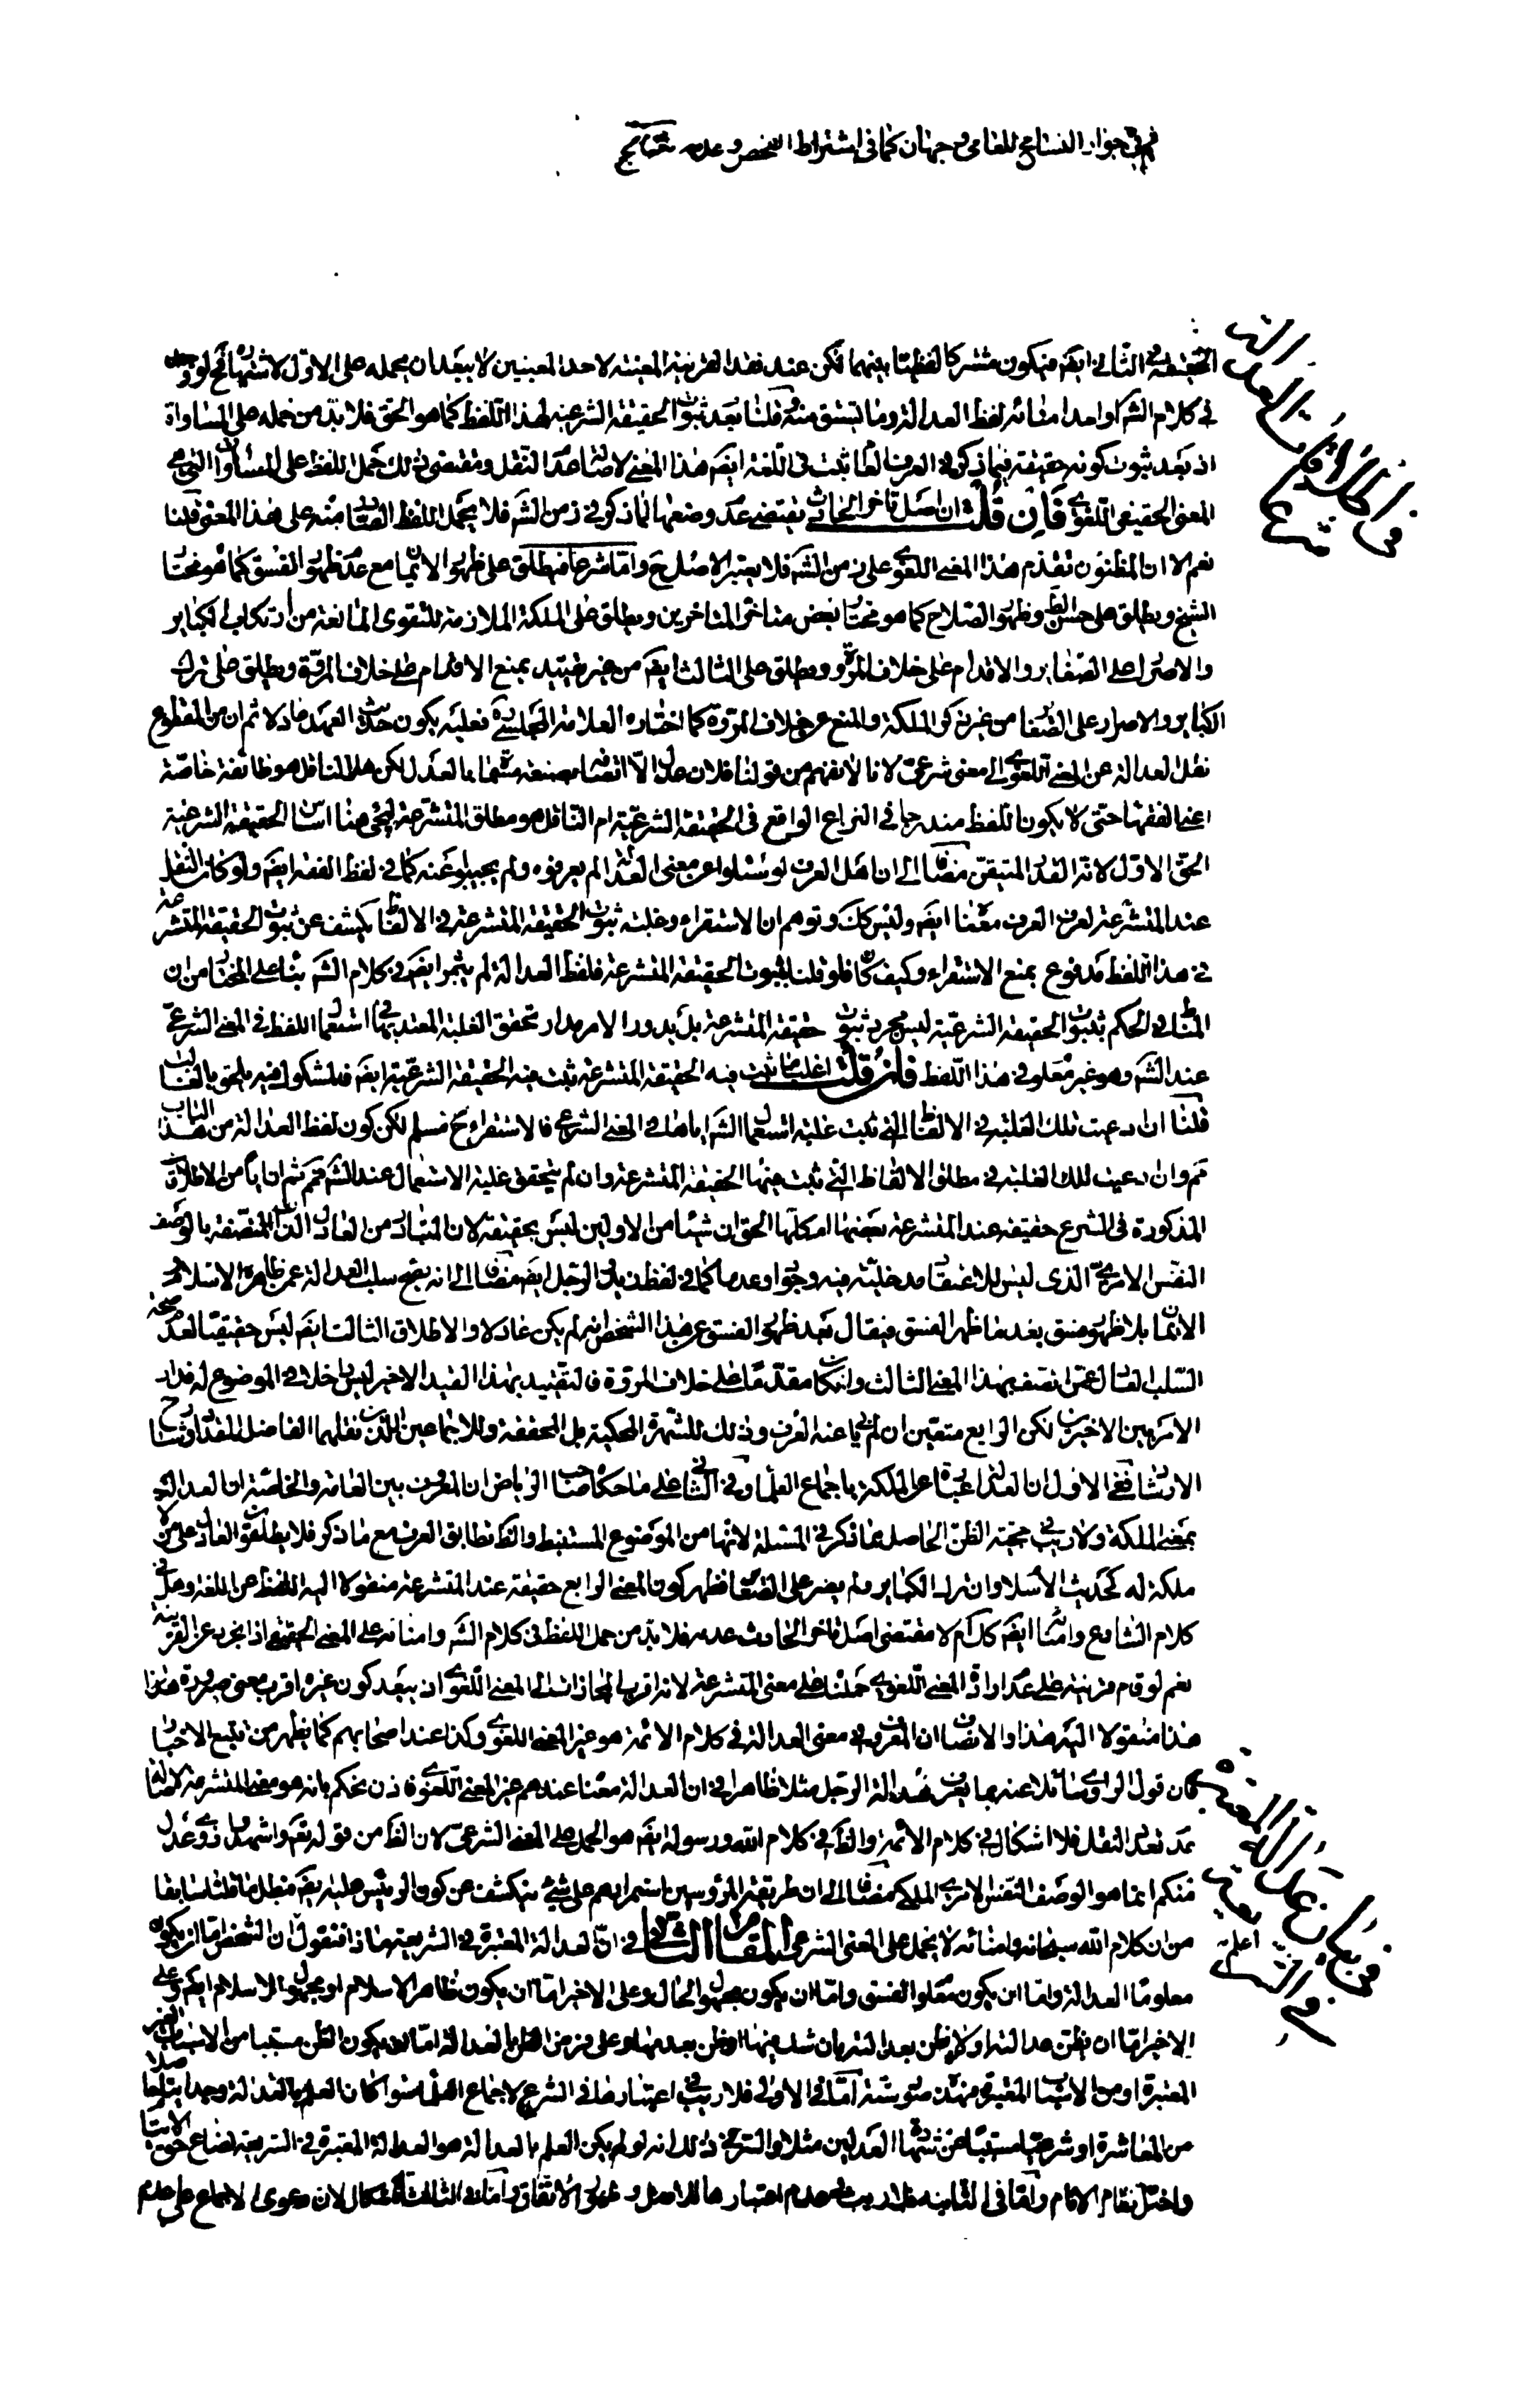 في جواز التسامح للعامي وجهان كما في اشتراط الفحص وعدمه
الحقيقة في الثاني ايضا فيكون مشتركا لفظيا بينهما لكن عند فقد القرينة المعينة لاحد المعنيين لا يبعد ان يحمله على الاول لاشتهاره فح لو وجد
في كلام الشر اوامر امنائه لفظ العدالة وما يشتق منه قلنا بعد ثبوت الحقيقة الشرعية لهذا اللفظ كما هو الحق فلا بد من حمله على المساواة
اذ بعد ثبوت كونه حقيقة فيما ذكر في العرف العام ثبت في اللغة ايضا هذا المعنى لاصالة عدم النقل ومقتضى ذلك حمل اللفظ على المساواة التي هي
المعنى الحقيقي اللغوي فان قلت ان اصل تاخر الحادث يقتضي عدم وضعها لما ذكر في زمن الشر فلا يحمل اللفظ الصادر منه على هذا المعنى قلنا
نعم الا ان المظنون تقدم هذا المعنى اللغوي على زمن الشر فلا يعتبر الاصل ح واما شرعا فيطلق على ظهور الايمان مع عدم ظهور الفسق كما هو مختار
الشيخ ويطلق على حسن الظاهر وظهور الصلاح كما هو مختار بعض متاخر المتاخرين ويطلق على الملكة الملازمة للتقوى المانعة من ارتكاب الكباير
والاصرار على الصغاير والاقدام على خلاف المروة ويطلق على الثالث ايضا من غير تقييد بمنع الاقدام على خلاف المروة ويطلق على ترك
الكباير والاصرار على الصغاير من غير ذكر الملكة والمنع عن خلاف المروة كما اختاره العلامة المجلسي فعليه يكون حديث العهد عادلا ثم ان من المقطوع
نقل العدالة عن المعنى اللغوي الى معنى شرعي لانا لا نفهم من قولنا فلان عادل الا اتصافه بصفة مسماة بالعدل لكن هل الناقل هو طائفة خاصة
اعني الفقهاء حتى لا يكون اللفظ مندرجا في النزاع الواقع في الحقيقة الشرعية ام الناقل هو مطلق المتشرعة ليجيء هنا اثبات الحقيقة الشرعية
الحق الاول لانه القدر المتيقن مضافا الى ان اهل العرف لو سئلوا عن معنى العدالة لم يعرفوه ولم يجيبوا عنه كما في لفظ الفقه ايضا ولو كان النقل
عند المتشرعة لعرف العرف معناها ايضا وليس كك وتوهم ان الاستقراء وغلبة ثبوت الحقيقة المتشرعة في الالفاظ يكشف عن ثبوت الحقيقة المتشرعة
في هذا اللفظ مدفوع بمنع الاستقراء وكيف كان فلو قلنا بثبوت الحقيقة المتشرعة فلفظ العدالة لم يثمر ايضا في كلام الشر بناء على المختار من ان
المناط في الحكم بثبوت الحقيقة الشرعية ليس مجرد ثبوت حقيقة المتشرعة بل يدور الامر مدار تحقق الغلبة المعتد بها في استعمال اللفظ في المعنى الشرعي
عند الشر وهو غير معلوم في هذا اللفظ فان قلت اغلب ما ثبت فيه الحقيقة المتشرعة ثبت فيه الحقيقة الشرعية ايضا فالمشكوك فيه يلحق بالغالب
قلنا ان ادعيت تلك الغلبة في الالفاظ التي ثبت غلبة استعمال الشر اياها في المعنى الشرعي فالاستقراء ح مسلم لكن كون لفظ العدالة من هذا الباب
مم وان ادعيت تلك الغلبة في مطلق الالفاظ التي ثبت فيها الحقيقة المتشرعة وان لم يتحقق غلبة الاستعمال عند الشر فمم ثم ان ايا من الاطلاقات
المذكورة في الشرع حقيقة عند المتشرعة بعضها ام كلها الحق ان شيئا من الاولين ليس بحقيقة لان المتبادر من العادل الذات المتصفة بالوصف
النفس الامري الذي ليس للاعتقاد مدخلية فيه وجودا وعدما كما في لفظ زيد والرجل ايضا مضافا الى انه يصح سلب العدالة عن ظاهر الاسلام
الايمان بلا ظهور فسق بعد ما ظهر الفسق فيقال بعد ظهور الفسق عن هذا الشخص انه لم يكن عادلا والاطلاق الثالث ايضا ليس حقيقيا لعدم صحة
السلب لغة عمن اتصف بهذا المعنى الثالث وان كان مقدما على خلاف المروة فالتقييد بهذا القيد الاخير ليس داخلا في الموضوع له فدار
الامر بين الاخيرين لكن الرابع متعين ان لم ياباه عنه العرف وذلك للشهرة المحكية بل المحققة وللاجماعين اللذين نقلهما الفاضل المقداد وشارح
الارشاد ففي الاول ان العدالة عبارة عن الملكة باجماع العلماء وفي الثاني على ما حكاه صاحب الرياض ان المعروف بين العامة والخاصة ان العدالة
بمعنى الملكة ولا ريب في حجية الظن الحاصل مما ذكر في المسئلة لانها من الموضوع المستنبط والظ تطابق العرف مع ما ذكر فلا يطلقون العادل على من لا
ملكة له كحديث الاسلام وان ترك الكباير ولم يصر على الصغاير فظهر كون المعنى الرابع حقيقة عند المتشرعة منقولا اليه اللفظ عن اللغة وهل في
كلام الشارع وامنائه ايضا كك ام لا مقتضى اصل تاخر الحادث عدمه فلا بد من حمل اللفظ في كلام الشر وامنائه على المعنى الحقيقي اذا تجرد عن القرينة
نعم لو قام قرينة على عدم ارادة المعنى اللغوي حملنا على معنى المتشرعة لانه اقرب المجازات الى المعنى اللغوي اذ يبعد كون غيره اقرب معنى صيرورة هذا
هذا منقولا اليه هذا والانصاف ان المعروف في معنى العدالة في كلام الائمة هو غير المعنى اللغوي وكذا عند اصحابهم كما يظهر من تتبع الاخبار
كان قول الراوي سائلا عنه بما يعرف عدالة الرجل مثلا ظاهرا في ان العدالة معناها عندهم غير المعنى اللغوي فاذن نحكم بانه هو معنى المتشرعة لاصالة
عدم تعدد النقل فلا اشكال في كلام الائمة والظ في كلام الله ورسوله ايضا هو الحمل على المعنى الشرعي لان الظ من قوله تع واشهدوا ذوي عدل
منكم انما هو الوصف النفس الامري الملكي مضافا الى ان طريقة المرؤوسين استمرارهم على شيء ينكشف عن كون الرئيس عليه ايضا فبطل ما قلنا سابقا
من ان كلام الله سبحانه وامنائه لا يحمل على المعنى الشرعي المقام الثاني في ان العدالة المعتبرة في الشريعة ماذا فنقول ان الشخص اما ان يكون
معلوما العدالة واما ان يكون معلوم الفسق واما ان يكون مجهول الحال وعلى الاخير اما ان يكون ظاهر الاسلام او مجهول الاسلام ايضا وعلى
الاخير اما ان يظن عدالته او لا يظن بعدالته بان شك فيها او ظن بعدمها وعلى فرض الظن بالعدالة اما ان يكون الظن مسببا من الاسباب الغير
المعتبرة او من الاسباب المعتبرة فهذه صور ستة اما في الاولى فلا ريب في اعتبارها في الشرع لاجماع العلماء سواء كان العلم بالعدالة وجدانيا حاصلا
من المعاشرة او شرعيا مسببا عن شهادة العدلين مثلا والسر في ذلك انه لو لم يكن العلم بالعدالة هو العدالة المعتبرة في الشريعة لضاع حقوق الناس
واختل نظام الانام واما في الثانية فلا ريب في عدم اعتبارها للاصل وظهور الاتفاق واما في الثالثة فاشكال لان دعوى الاجماع على عدم